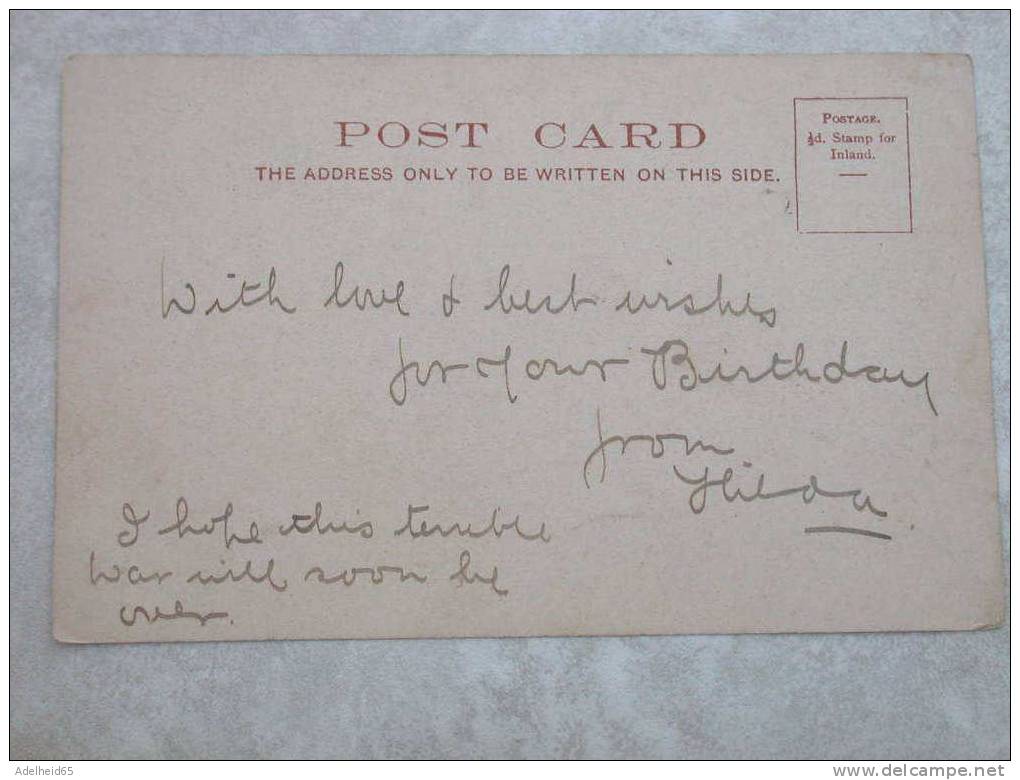 POST CARD
THE ADDRESS ONLY TO BE WRITTEN ON THIS SIDE.
POSTAGE.
½d. Stamp for
Inland.
With love & best wishes
for Your Birthday
from
Hilda
I hope this terrible
War will soon be
over.
Adelheid65
www.delcampe.net